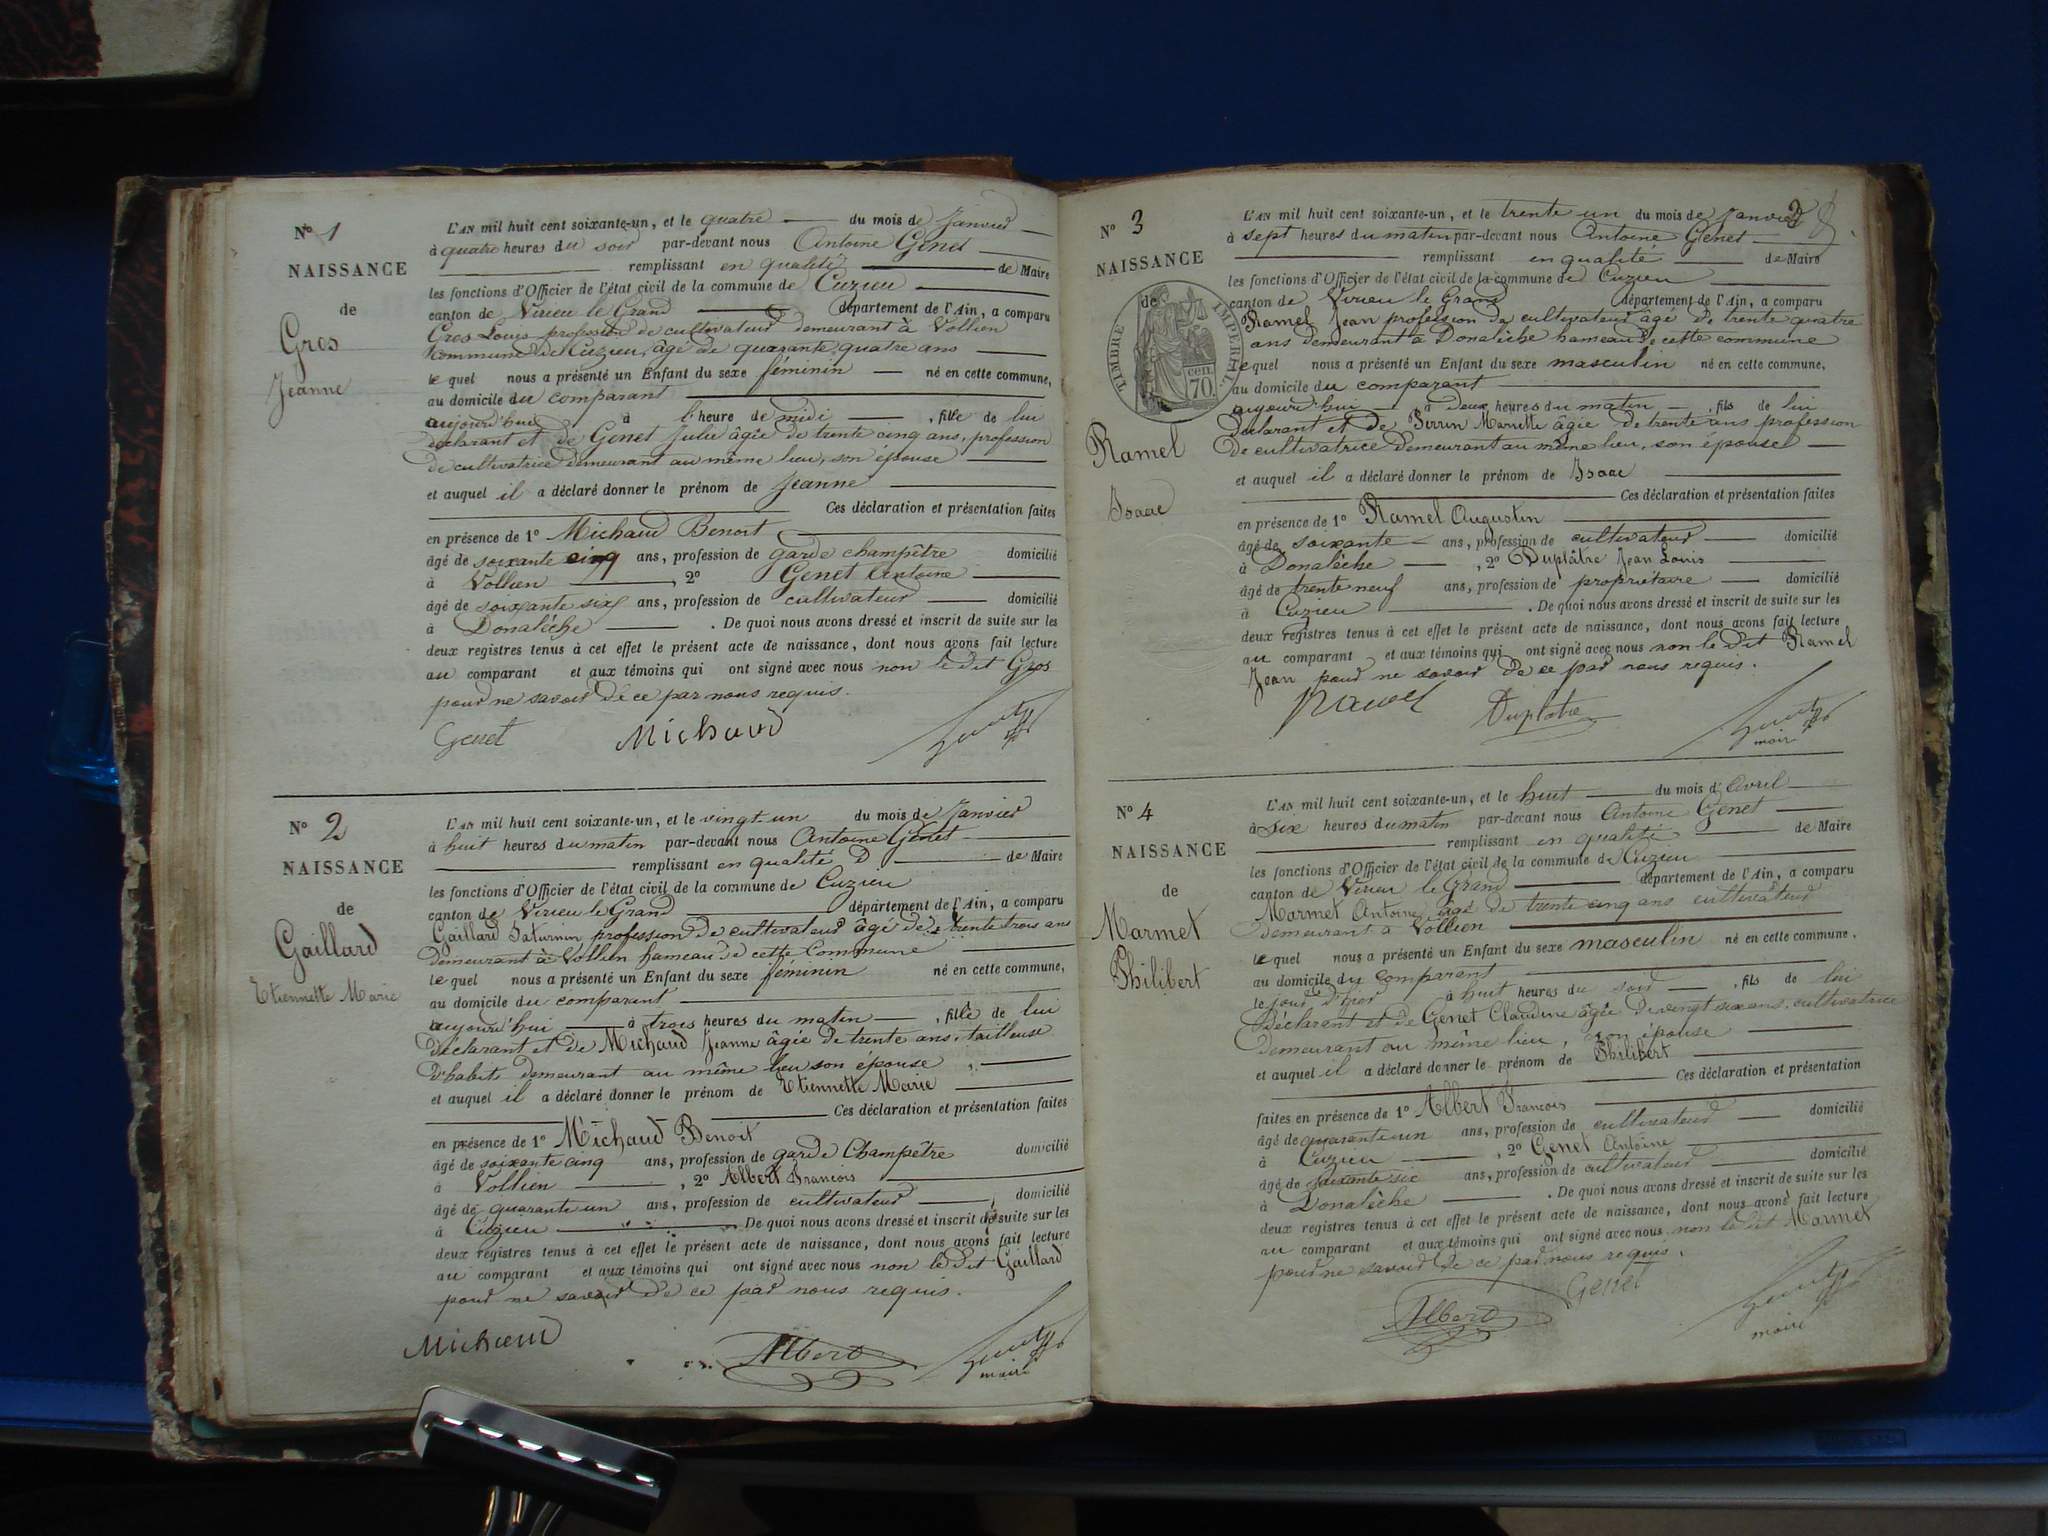 N° 1
NAISSANCE
de
Gros
Jeanne
L'AN mil huit cent soixante-un, et le quatre du mois de Janvier
à quatre heures du soir par-devant nous Antoine Genet
remplissant en qualité de Maire
les fonctions d'Officier de l'état civil de la commune de Cuzieu
canton de Virieu le Grand département de l'Ain, a comparu
Gros Louis profession de cultivateur demeurant à Vollien
commune de Cuzieu, âgé de quarante quatre ans
lequel nous a présenté un Enfant du sexe féminin né en cette commune,
au domicile du comparant
aujourd'hui à l'heure de midi , fille de lui
déclarant et de Genet Julie âgée de trente cinq ans, profession
de cultivatrice demeurant au même lieu, son épouse
et auquel il a déclaré donner le prénom de Jeanne
Ces déclaration et présentation faites
en présence de 1° Michaud Benoit
âgé de soixante cinq ans, profession de garde champêtre domicilié
à Vollien , 2° Genet Antoine
âgé de soixante six ans, profession de cultivateur domicilié
à Donalèche . De quoi nous avons dressé et inscrit de suite sur les
deux registres tenus à cet effet le présent acte de naissance, dont nous avons fait lecture
au comparant et aux témoins qui ont signé avec nous non le dit Gros
pour ne savoir de ce par nous requis.
Genet Michaud
N° 2
NAISSANCE
de
Gaillard
Etiennette Marie
L'AN mil huit cent soixante-un, et le vingt-un du mois de Janvier
à huit heures du matin par-devant nous Antoine Genet
remplissant en qualité de Maire
les fonctions d'Officier de l'état civil de la commune de Cuzieu
canton de Virieu le Grand département de l'Ain, a comparu
Gaillard Saturnin profession de cultivateur âgé de trente trois ans
demeurant à Vollien hameau de cette Commune
lequel nous a présenté un Enfant du sexe féminin né en cette commune,
au domicile du comparant
aujourd'hui à trois heures du matin , fille de lui
déclarant et de Michaud Jeanne âgée de trente ans, tailleuse
d'habits demeurant au même lieu son épouse
et auquel il a déclaré donner le prénom de Etiennette Marie
Ces déclaration et présentation faites
en présence de 1° Michaud Benoit
âgé de soixante cinq ans, profession de garde Champêtre domicilié
à Vollien , 2° Albert Francois
âgé de quarante un ans, profession de cultivateur domicilié
à Cuzieu . De quoi nous avons dressé et inscrit de suite sur les
deux registres tenus à cet effet le présent acte de naissance, dont nous avons fait lecture
au comparant et aux témoins qui ont signé avec nous non le dit Gaillard
pour ne savoir de ce par nous requis.
Michaud Albert maire
3
N° 3
NAISSANCE
de
TIMBRE IMPERIAL
70 cen.
Ramel
Isaac
L'AN mil huit cent soixante-un, et le trente un du mois de Janvier
à sept heures du matin par-devant nous Antoine Genet
remplissant en qualité de Maire
les fonctions d'Officier de l'état civil de la commune de Cuzieu
canton de Virieu le Grand département de l'Ain, a comparu
Ramel Jean profession de cultivateur âgé de trente quatre
ans demeurant à Donalèche hameau de cette commune
lequel nous a présenté un Enfant du sexe masculin né en cette commune,
au domicile du comparant
aujourd'hui à deux heures du matin , fils de lui
déclarant et de Perrin Mariette âgée de trente ans profession
de cultivatrice demeurant au même lieu, son épouse
et auquel il a déclaré donner le prénom de Isaac
Ces déclaration et présentation faites
en présence de 1° Ramel Augustin
âgé de soixante ans, profession de cultivateur domicilié
à Donalèche , 2° Duplâtre Jean Louis
âgé de trente neuf ans, profession de propriétaire domicilié
à Cuzieu . De quoi nous avons dressé et inscrit de suite sur les
deux registres tenus à cet effet le présent acte de naissance, dont nous avons fait lecture
au comparant et aux témoins qui ont signé avec nous non le dit Ramel
Jean pour ne savoir de ce par nous requis.
Ramel Duplatre maire
N° 4
NAISSANCE
de
Marmet
Philibert
L'AN mil huit cent soixante-un, et le huit du mois d'Avril
à six heures du matin par-devant nous Antoine Genet
remplissant en qualité de Maire
les fonctions d'Officier de l'état civil de la commune de Cuzieu
canton de Virieu le Grand département de l'Ain, a comparu
Marmet Antoine, âgé de trente cinq ans cultivateur
demeurant à Vollien
lequel nous a présenté un Enfant du sexe masculin né en cette commune,
au domicile du comparant
le jour d'hier à huit heures du soir , fils de lui
déclarant et de Genet Claudine âgée de vingt six ans, cultivatrice
demeurant au même lieu, son épouse
et auquel il a déclaré donner le prénom de Philibert
Ces déclaration et présentation
faites en présence de 1° Albert Francois
âgé de quarante un ans, profession de cultivateur domicilié
à Cuzieu , 2° Genet Antoine
âgé de soixante six ans, profession de cultivateur domicilié
à Donalèche . De quoi nous avons dressé et inscrit de suite sur les
deux registres tenus à cet effet le présent acte de naissance, dont nous avons fait lecture
au comparant et aux témoins qui ont signé avec nous non le dit Marmet
pour ne savoir de ce par nous requis.
Albert Genet maire